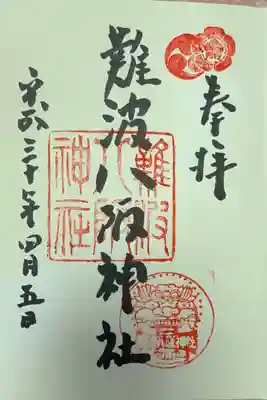 奉拝
難波八阪神社
難波
八阪
神社
平成三十年四月五日